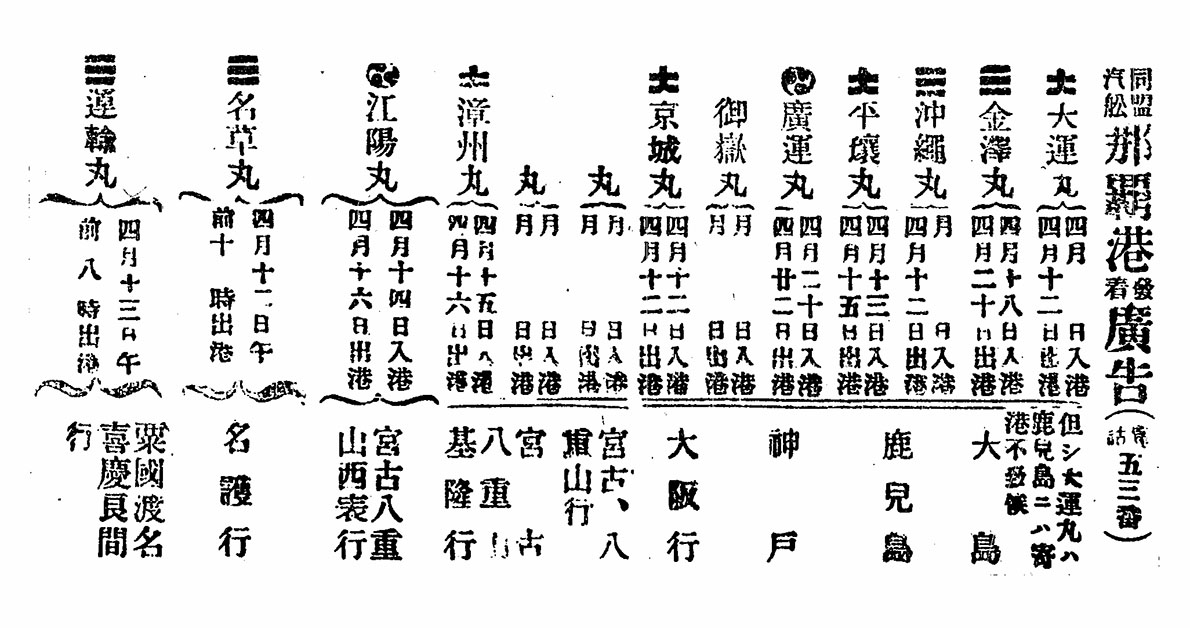 同盟
汽舩
那覇港
發
着
廣告(電話五三番)
大運丸
四月 日入港
四月十二日出港
金澤丸
四月十八日入港
四月二十日出港
沖繩丸
月 日入港
四月十二日出港
平壤丸
四月十三日入港
四月十五日出港
廣運丸
四月二十日入港
四月廿二日出港
御嶽丸
月 日入港
月 日出港
京城丸
四月十二日入港
四月十二日出港
但シ大運丸ハ
鹿兒島ニハ寄
港不致候
大島
鹿兒島
神戸
大阪行
丸
月 日入港
月 日出港
丸
月 日入港
月 日出港
漳州丸
四月十五日入港
四月十六日出港
宮古、八
重山行
宮古
八重山
基隆行
江陽丸
四月十四日入港
四月十六日出港
宮古八重
山西表行
名草丸
四月十二日午
前十 時出港
名護行
運輸丸
四月十三日午
前八時出港
粟國渡名
喜慶良間
行